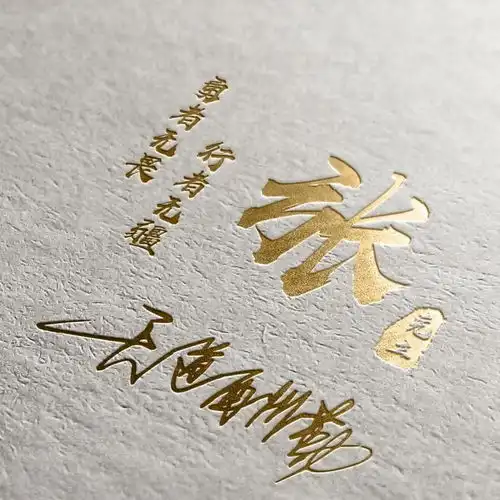 勇者无畏
行者无疆
张
元之
天道酬勤